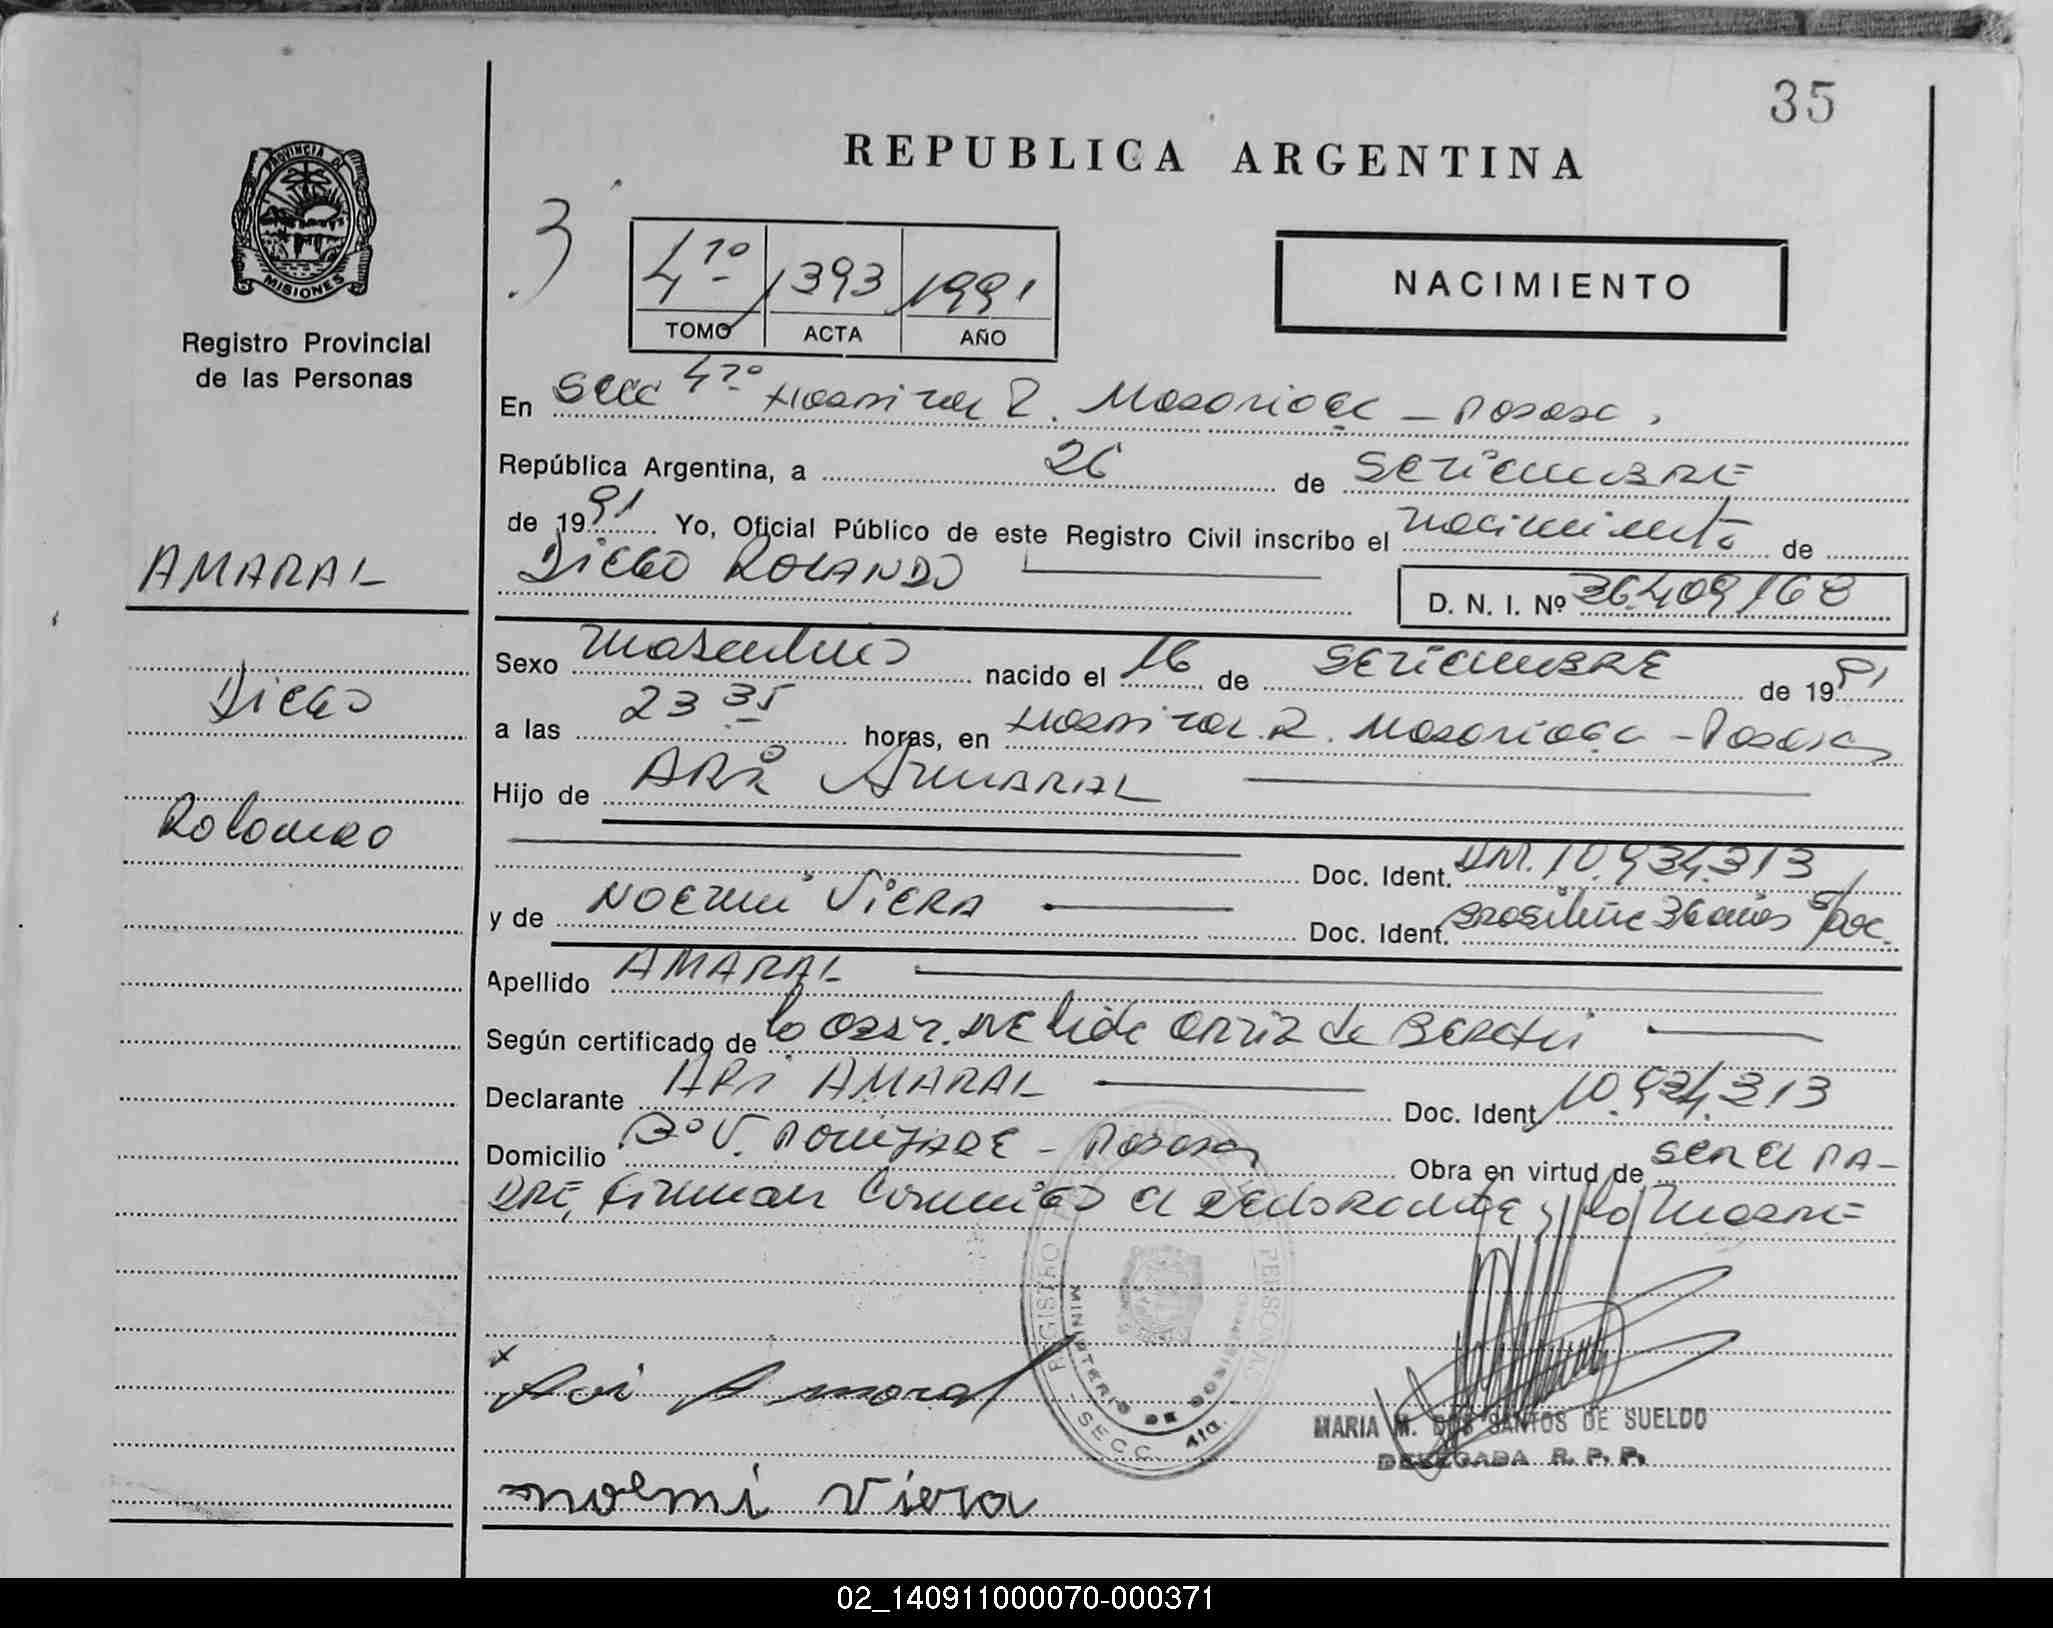 35
REPUBLICA ARGENTINA
PROVINCIA DE
MISIONES
Registro Provincial
de las Personas
3
4to 1393 1991
TOMO ACTA AÑO
NACIMIENTO
En Secc 4ta Hospital R. Madariaga - Posadas,
República Argentina, a 26 de SETIEMBRE
de 1991 Yo, Oficial Público de este Registro Civil inscribo el nacimiento de
DIEGO ROLANDO D. N. I. Nº 36.409.168
AMARAL
Diego
Rolando
Sexo masculino nacido el 16 de SETIEMBRE de 1991
a las 23 35 horas, en Hospital R. Madariaga - Posadas
Hijo de ARI AMARAL
Doc. Ident. DNI. 10.924.313
y de NOEMI VIERA Doc. Ident. Brasileña 36 años s/Doc.
Apellido AMARAL
Según certificado de la Obst. Nelida Ortiz de
Declarante ARI AMARAL Doc. Ident 10.924.313
Domicilio Bº V. POUJADE - Posadas Obra en virtud de SER El PA-
DRE, firman conmigo el declarante y la MADRE
REGISTRO PERSONAS
MINISTERIO DE GOBIERNO
SECC. 4ta.
Ari Amaral
MARIA M. DOS SANTOS DE SUELDO
DELEGADA R. P. P.
noemi viera
02_140911000070-000371